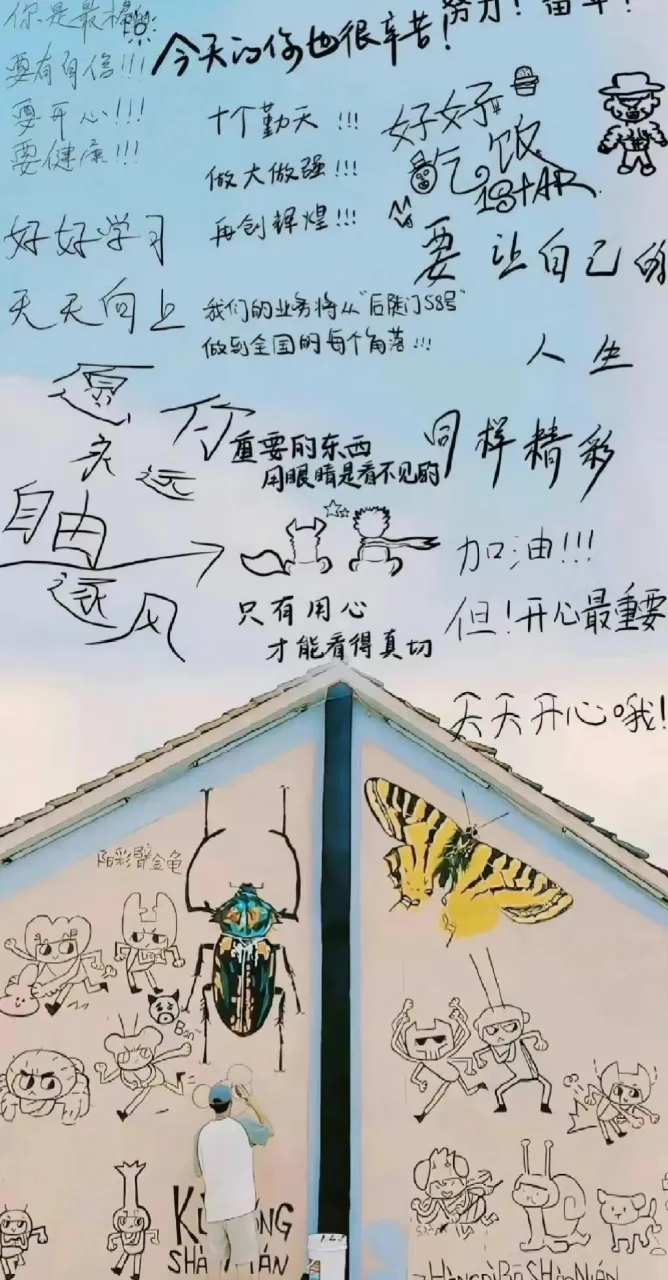 你是最棒的
要有自信!!!
要开心!!!
要健康!!!
努力!奋斗!
今天的你也很辛苦!
十个勤天!!!
做大做强!!!
再创辉煌!!!
好好
吃饭
1STAR
好好学习
天天向上
我们的业务将从“后陡门58号”
做到全国的每个角落!!!
要让自己的
人生
同样精彩
愿你
永远
自由
逐风
重要的东西
用眼睛是看不见的
只有用心
才能看得真切
加油!!!
但!开心最重要
天天开心哦!
阳彩臂金龟
Bon~
SHÀ
NIÁN
Háng
SHàNIáN